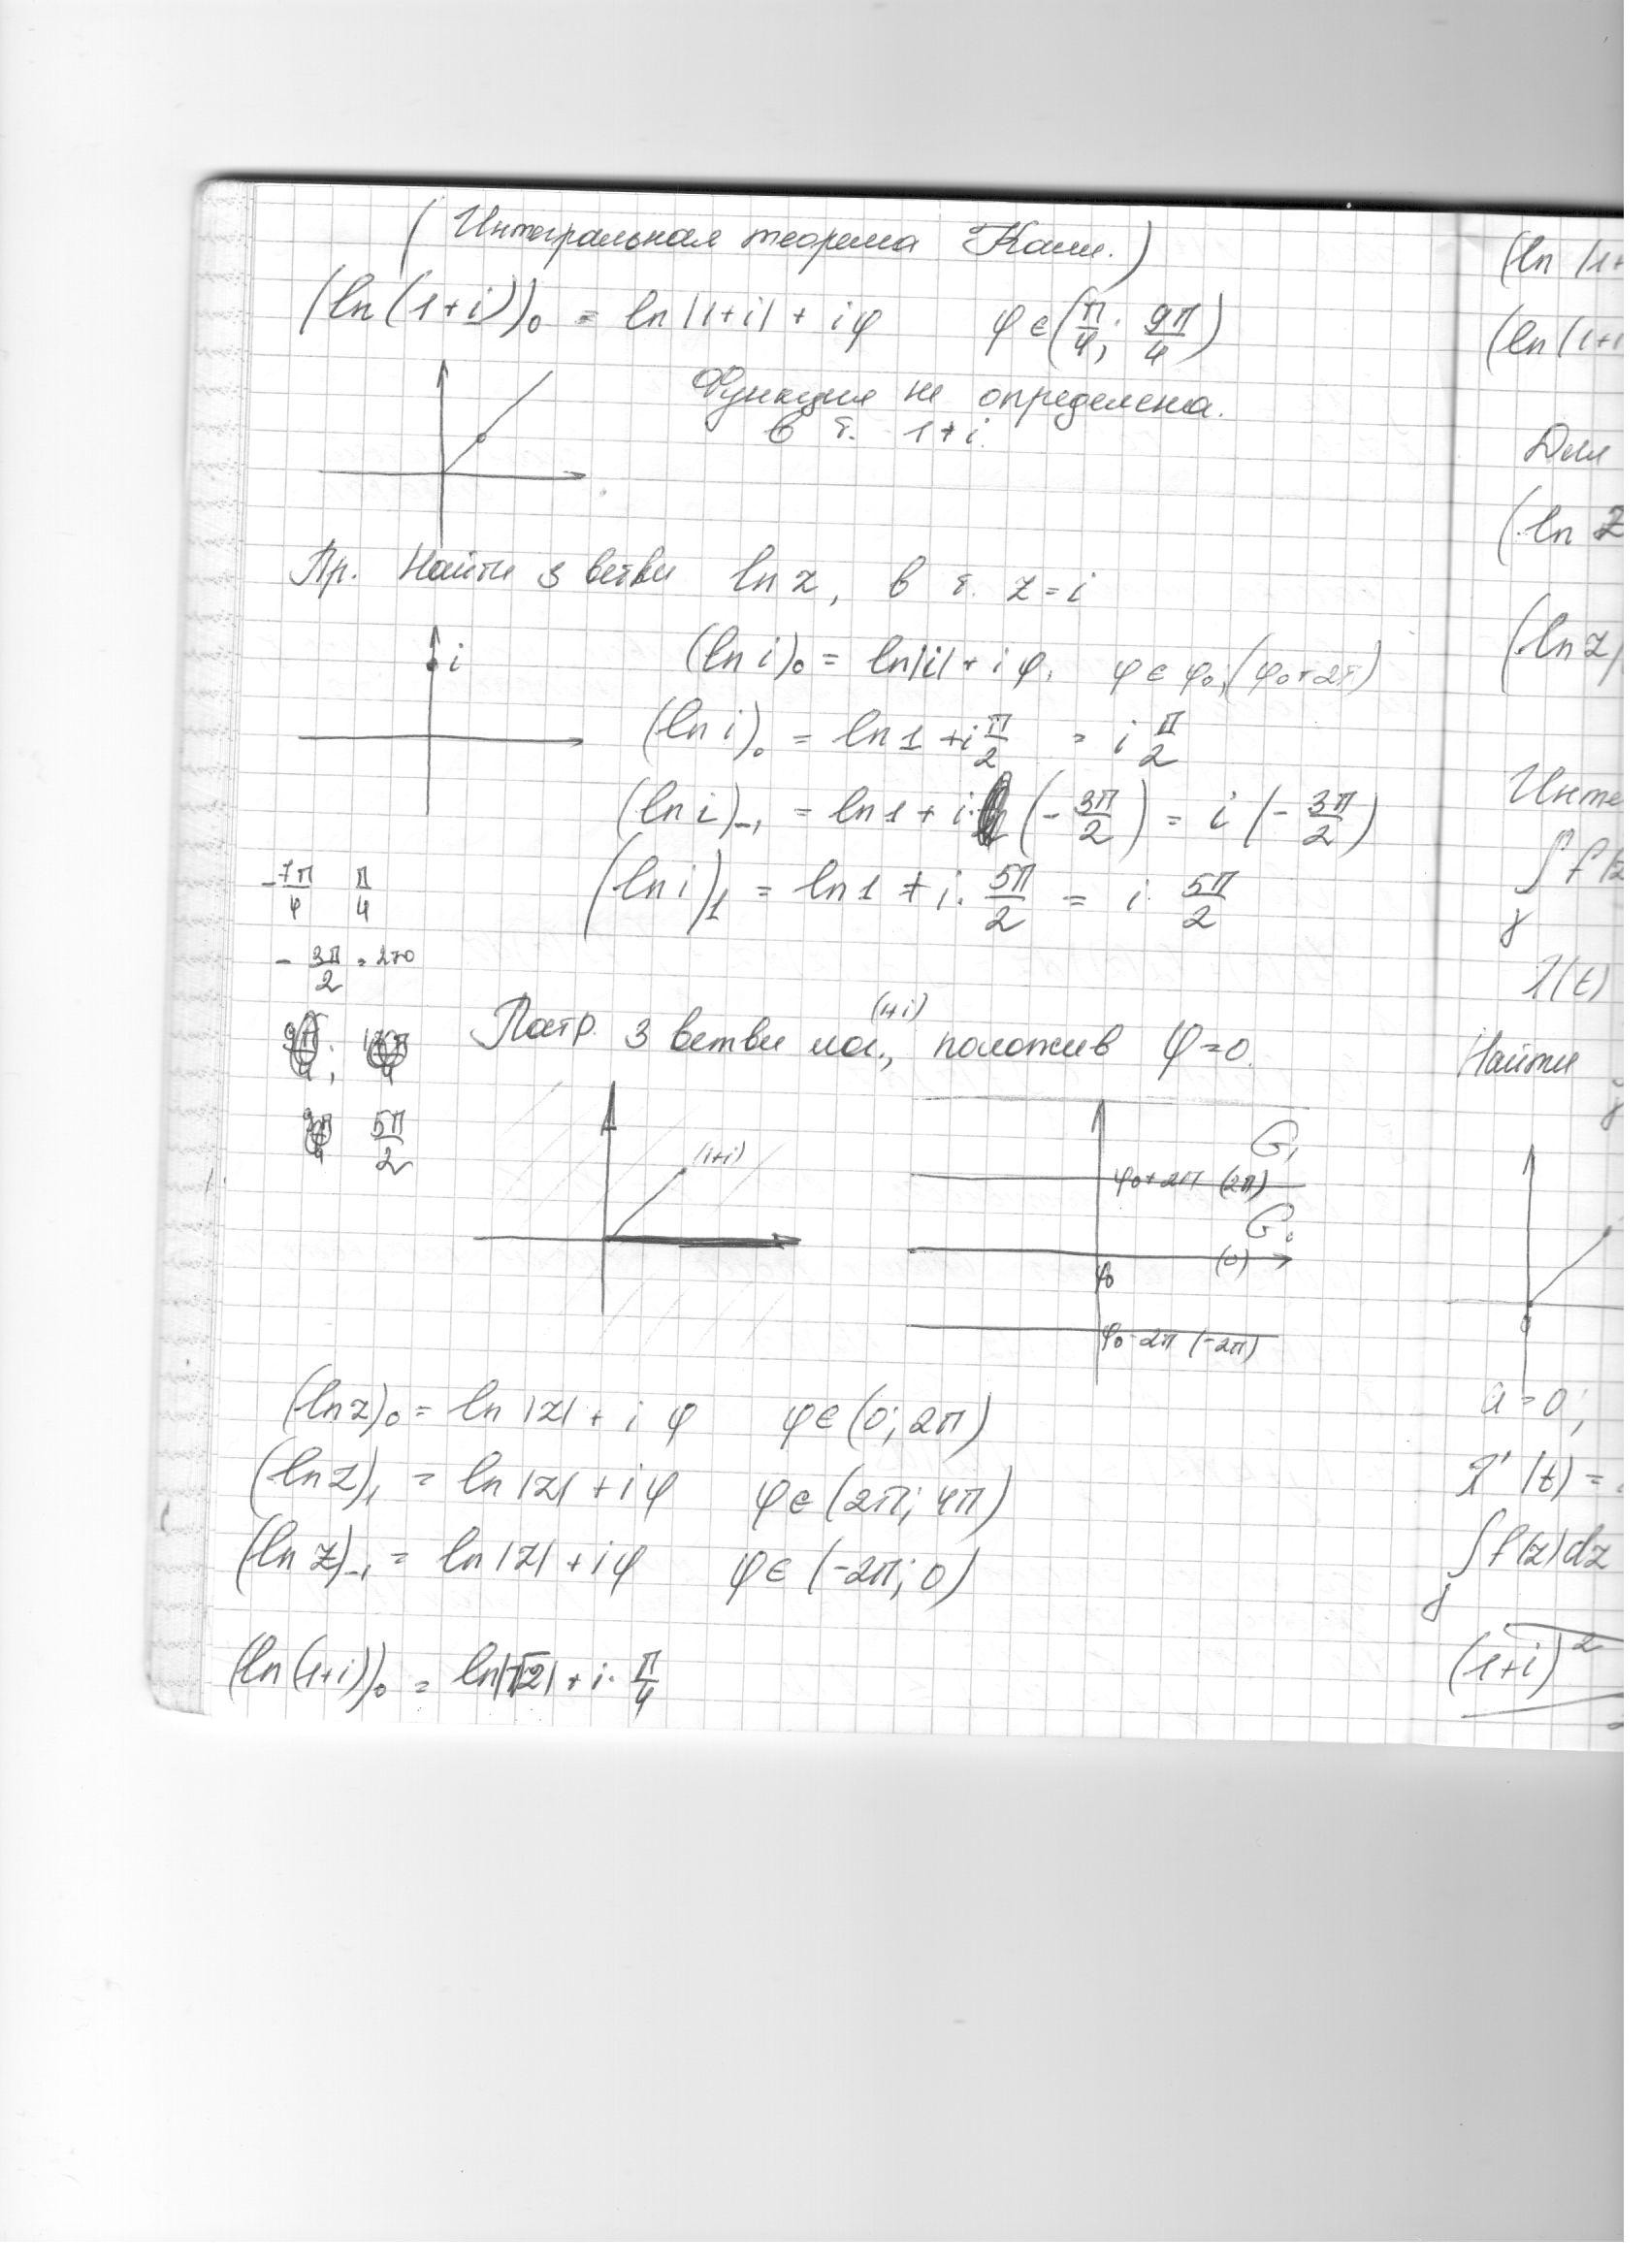 (Интегральная теорема Коши.)
(ln(1+i))₀ = ln|1+i| + iφ φ∈(π/4; 9π/4)
Функция не определена.
в т. 1+i.
Пр. Найти 3 ветви ln z, в т. z=i
i
(ln i)₀ = ln|i| + iφ, φ∈φ₀;(φ₀+2π)
(ln i)₀ = ln1 + i π/2 = i π/2
(ln i)₋₁ = ln1 + i·(-3π/2) = i(-3π/2)
(ln i)₁ = ln1 + i·5π/2 = i·5π/2
-7π/4 π/4
-3π/2 = 270
5π/2
3 ветви (1+i) положив φ=0.
(1+i)
G₁
φ₀+2π (2π)
G₀
φ₀ (0)
φ₀-2π (-2π)
(ln z)₀ = ln|z| + iφ φ∈(0; 2π)
(ln z)₁ = ln|z| + iφ φ∈(2π; 4π)
(ln z)₋₁ = ln|z| + iφ φ∈(-2π; 0)
(ln(1+i))₀ = ln|√2| + i·π/4
(ln |1+
(ln(1+i
Для
(ln z
(ln z)
Инте
∫ f(z
γ
λ(t)
Найти
a=0;
λ'(t) =
∫ f(z)dz
γ
(1+i)²